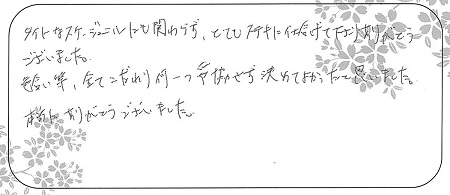 タイトなスケージュールにも関わらず、とてもステキに仕上げて下さりありがとう
ございました。
装い等、全てこだわり何一つ妥協せず決めてよかったと思いました。
本当にありがとうございました。